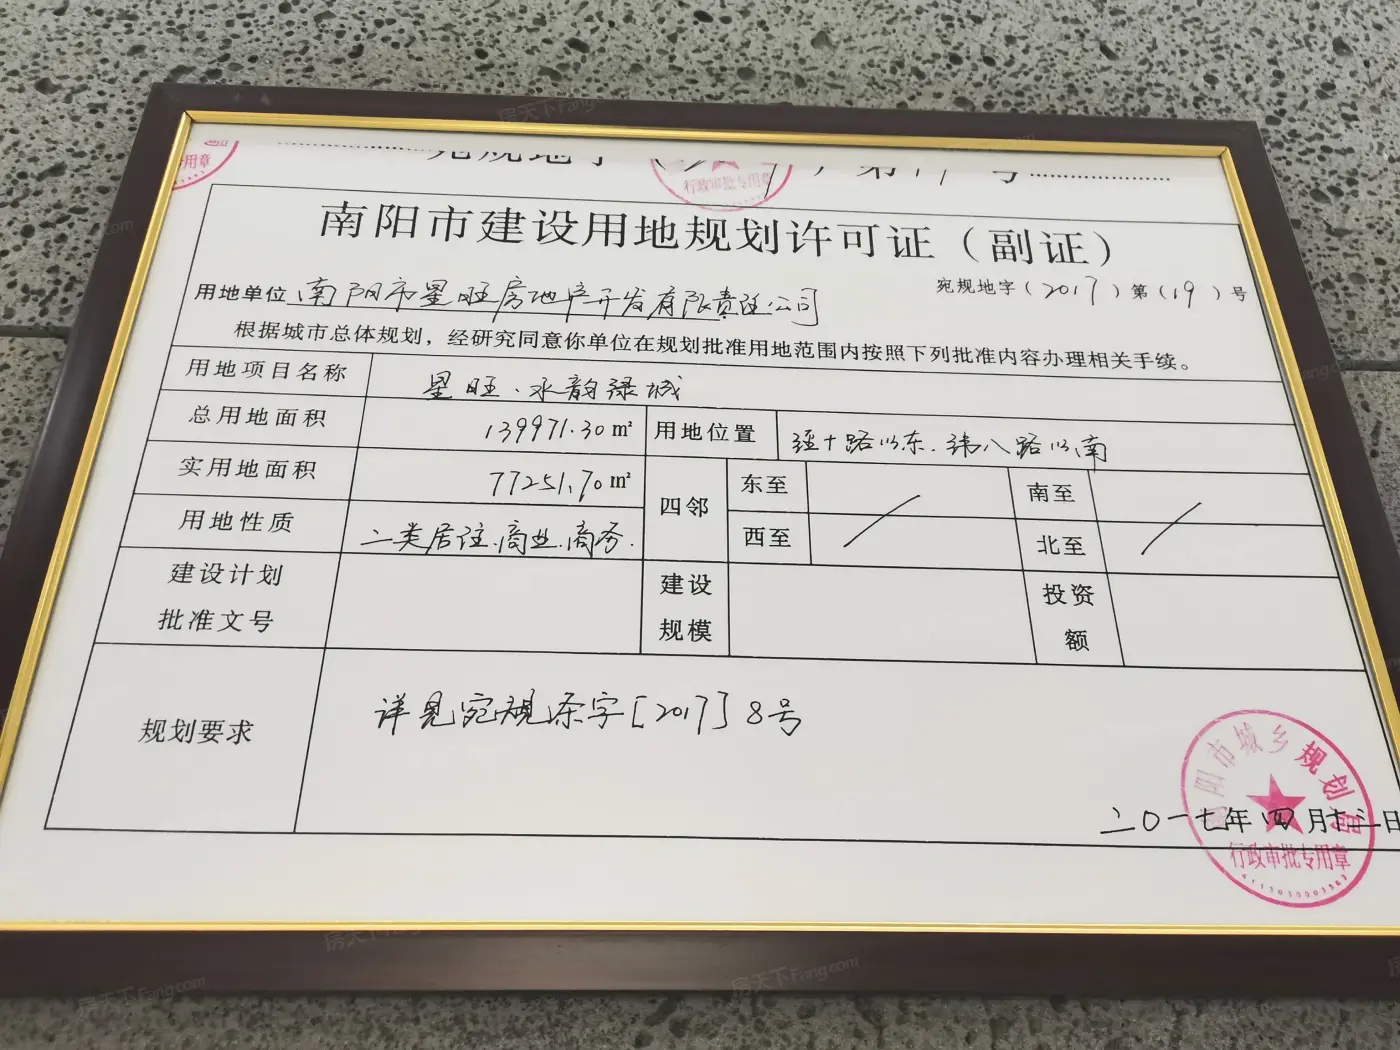 宛规地字（2017）第19号
行政审批专用章
用章
南阳市建设用地规划许可证（副证）
宛规地字（2017）第（19）号
用地单位 南阳市星旺房地产开发有限责任公司
根据城市总体规划，经研究同意你单位在规划批准用地范围内按照下列批准内容办理相关手续。
用地项目名称 星旺·水韵绿城
总用地面积 139971.30㎡ 用地位置 经十路以东、纬八路以南
实用地面积 77251.70㎡ 四邻 东至 / 南至 /
用地性质 二类居住、商业、商务. 西至 北至
建设计划 建设 投资
批准文号 规模 额
规划要求 详见宛规条字[2017]8号
南阳市城乡规划局
二〇一七年四月十三日
行政审批专用章
房天下Fang.com